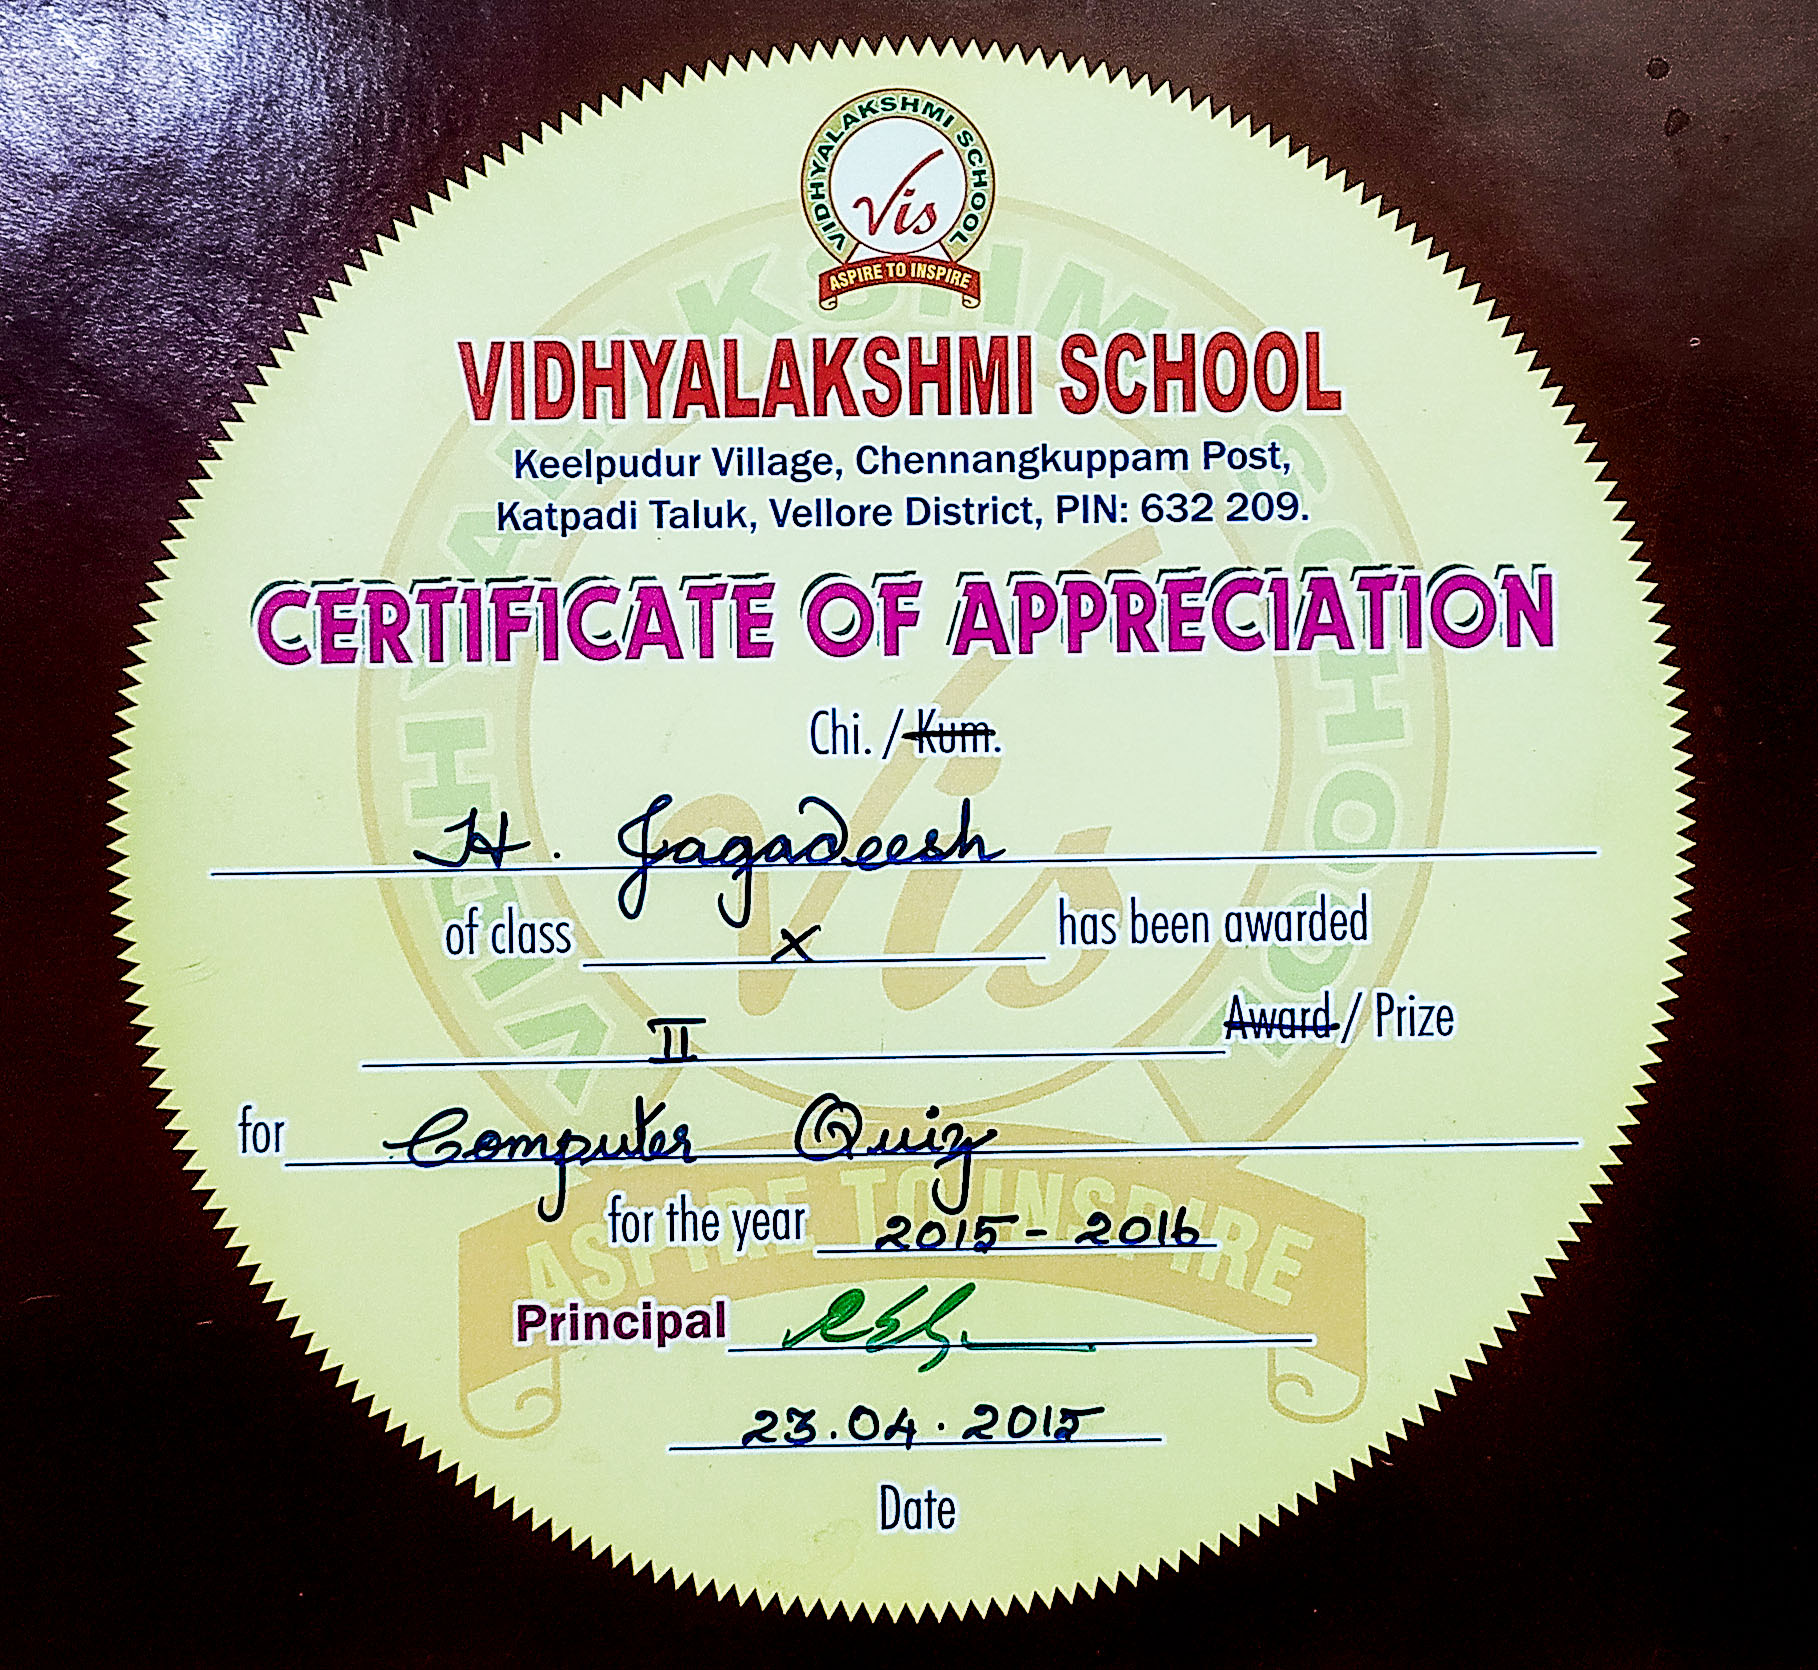 VIDHYALAKSHMI SCHOOL
Vis
ASPIRE TO INSPIRE
VIDHYALAKSHMI SCHOOL
Keelpudur Village, Chennangkuppam Post,
Katpadi Taluk, Vellore District, PIN: 632 209.
CERTIFICATE OF APPRECIATION
Chi. / Kum.
H. Jagadeesh
of class X has been awarded
II Award / Prize
for Computer Quiz
for the year 2015 - 2016
Principal
23.04.2015
Date